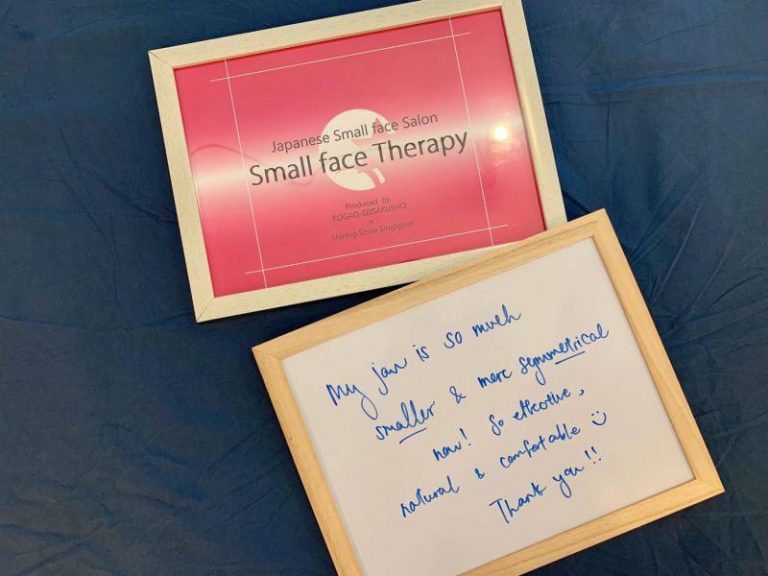 Japanese Small face Salon
Small face Therapy
Produced by
KOGAO-SEISAKUSHO
×
Shining Smile Singapore
My jaw is so much
smaller & more symmetrical
now! So effective,
natural & comfortable :)
Thank you!!